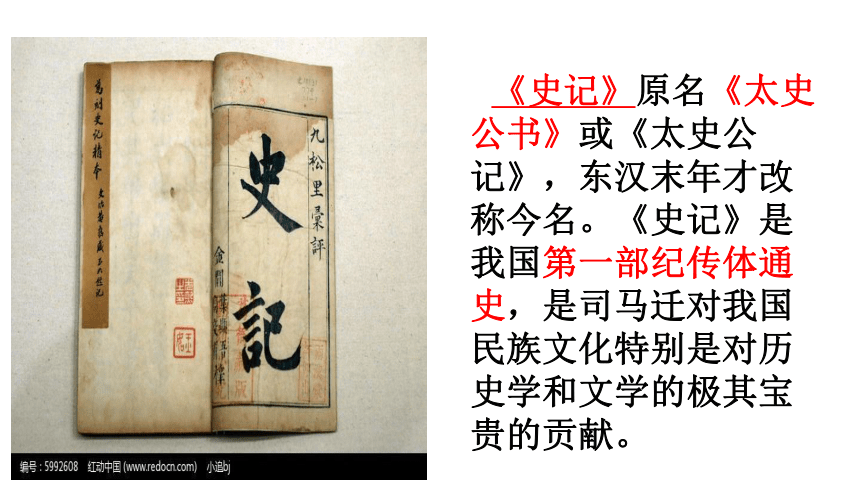 《史记》原名《太史
公书》或《太史公
记》，东汉末年才改
称今名。《史记》是
我国第一部纪传体通
史，是司马迁对我国
民族文化特别是对历
史学和文学的极其宝
贵的贡献。
九松里彙評
史記
编号：5992608 红动中国 (www.redocn.com) 小追bj